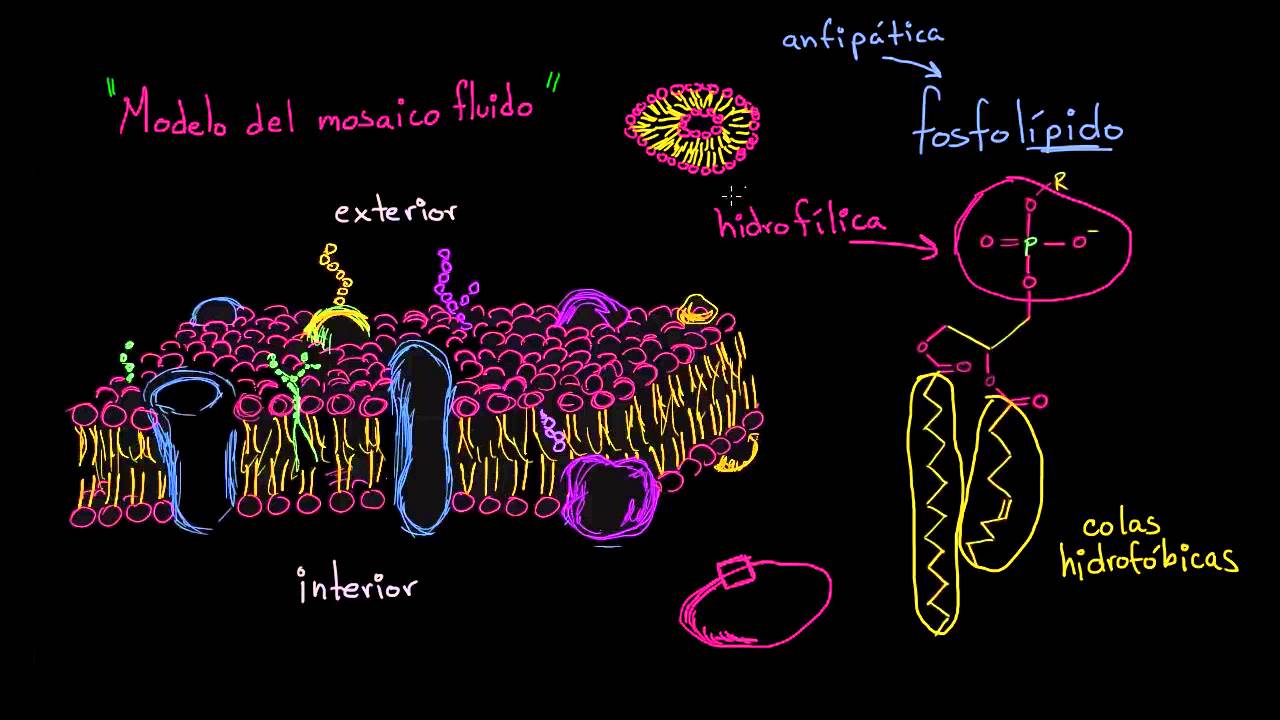 anfipática
"Modelo del mosaico fluido"
fosfolípido
exterior
hidrofílica
R
O
O=P—O⁻
O
O
=O
O
=O
colas
hidrofóbicas
interior